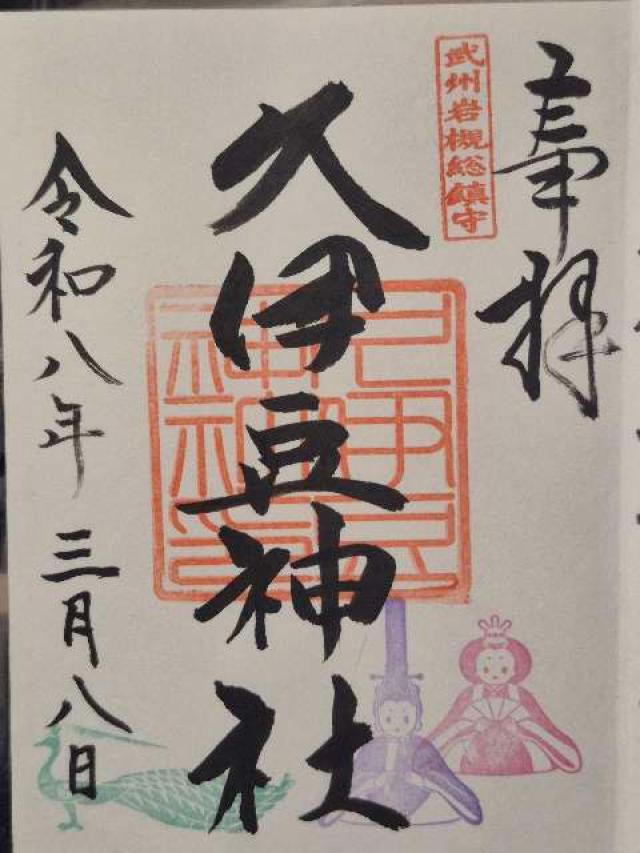 奉拝
武州岩槻総鎮守
久伊豆神社
令和八年三月八日